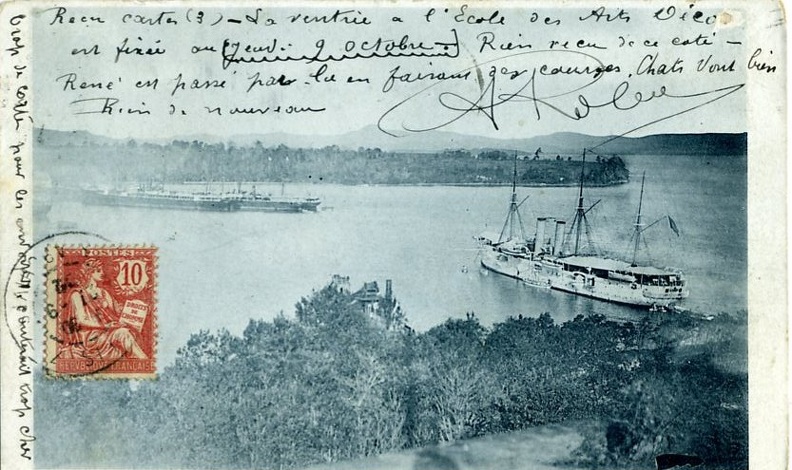 Reçu cartes (3) - La rentrée a l'Ecole des Arts Déco
est fixée au [jeudi 9 octobre -] Rien reçu de ce coté -
René est passé par-là en faisant des courses. Chats vont bien
Rien de nouveau
A Robu
trop de carte pour les envoyer, couterait trop cher
POSTES
10
DROITS DE L'HOMME
REPUBLIQUE FRANÇAISE